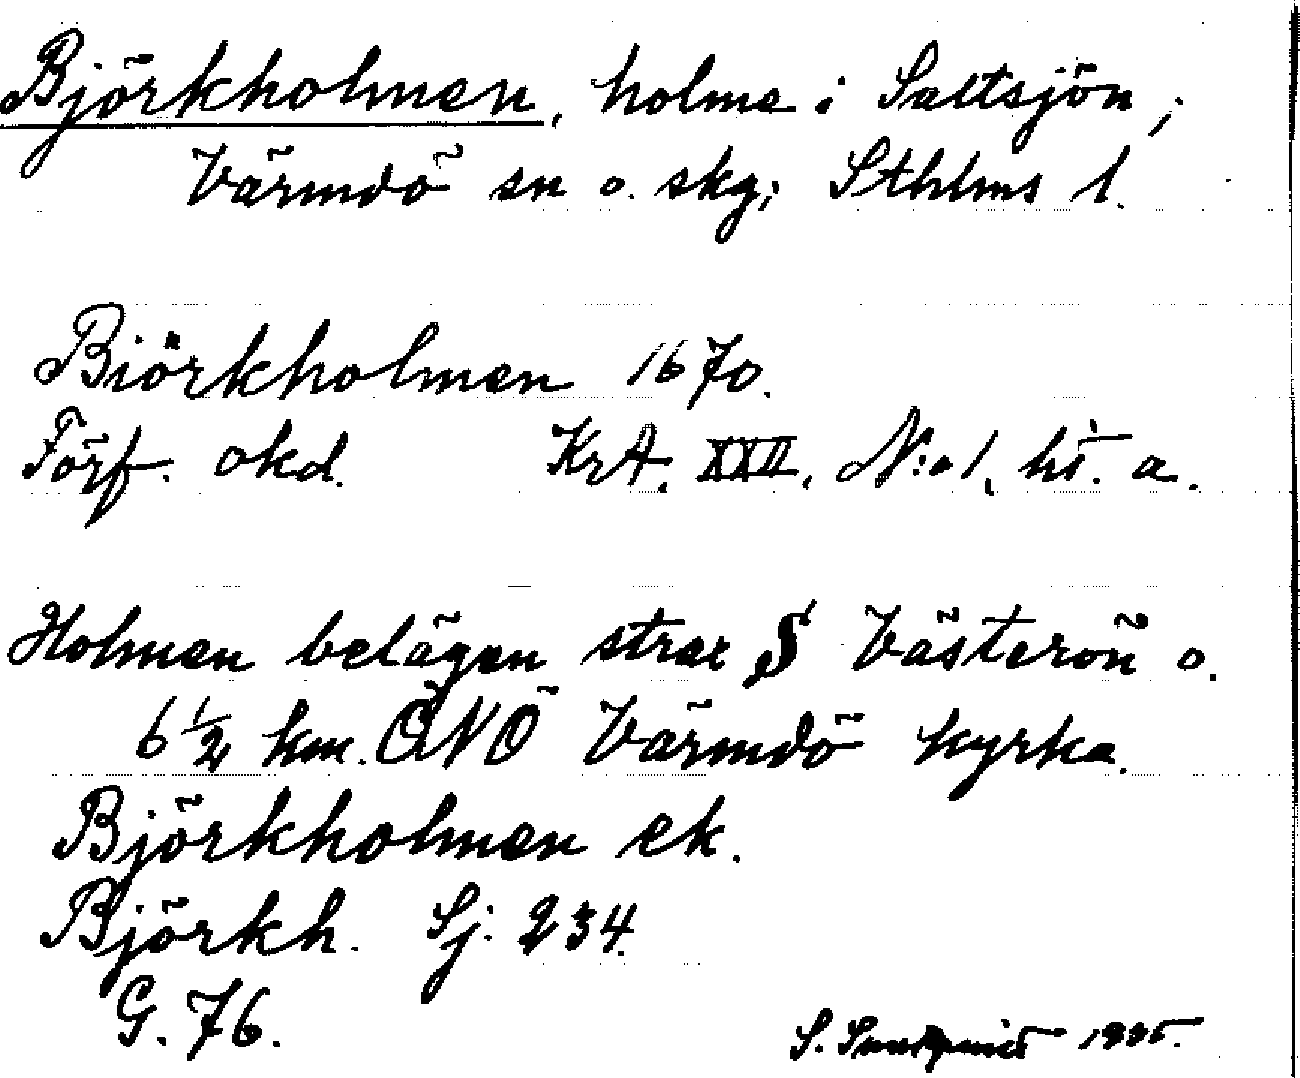 Björkholmen, holme i Saltsjön,
Värmdö sn o. skg; Sthlms l.
Biörkholmen 1670.
Förf. okd. KrA. XXII, N:o 1, hi. a.
Holmen belägen strax S Västerön o.
6 1/2 km. ÖNÖ Värmdö kyrka.
Björkholmen ek.
Björkh. Sj: 234.
G. 76.
S. 1935.